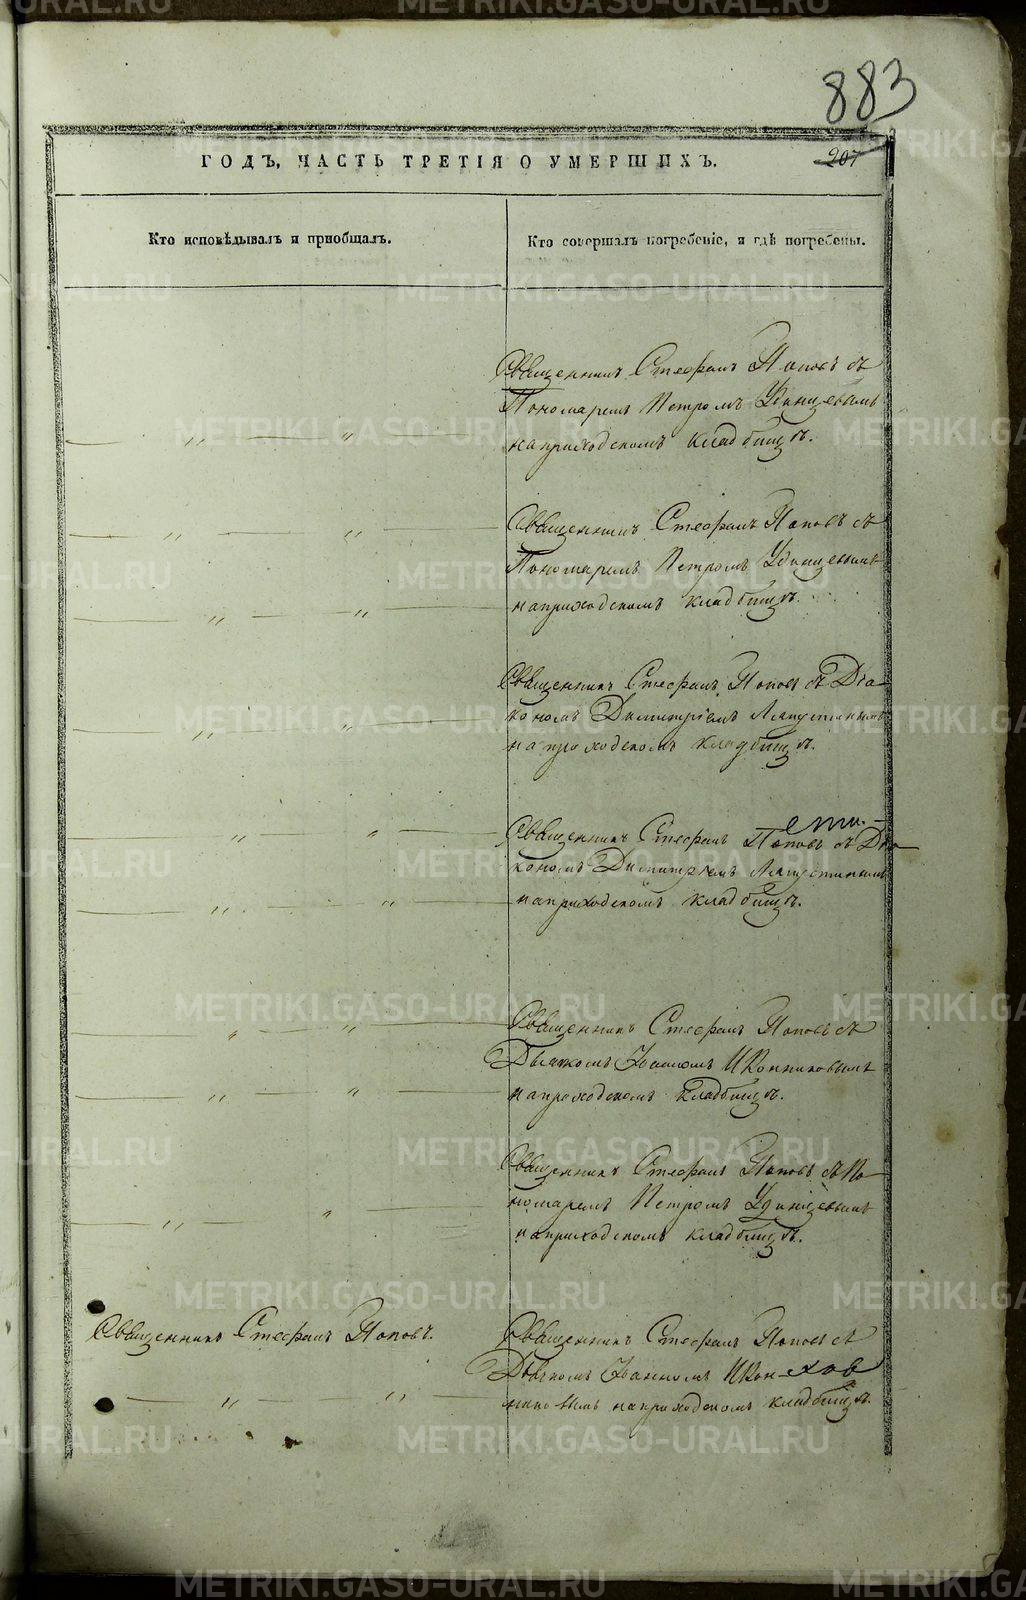 883
207
ГОДЪ, ЧАСТЬ ТРЕТІЯ О УМЕРШИХЪ.
Кто исповѣдывалъ и пріобщалъ.
Кто совершалъ погребеніе, и гдѣ погребены.
Священникъ Стефанъ Поповъ съ
Пономаремъ Петромъ Удинцевымъ
на приходскомъ кладбищѣ.
Священникъ Стефанъ Поповъ съ
Пономаремъ Петромъ Удинцевымъ
на приходскомъ кладбищѣ.
Священникъ Стефанъ Поповъ съ Діа-
кономъ Димитріемъ
на приходскомъ кладбищѣ.
Священникъ Стефанъ Поповъ съ Діа-
кономъ Димитріемъ
на приходскомъ кладбищѣ.
Священникъ Стефанъ Поповъ съ
Дьячкомъ Іоанномъ Иконниковымъ
на приходскомъ кладбищѣ.
Священникъ Стефанъ Поповъ съ По-
номаремъ Петромъ Удинцевымъ
на приходскомъ кладбищѣ.
Священникъ Стефанъ Поповъ.
Священникъ Стефанъ Поповъ съ
Дьячкомъ Іоанномъ Икон-
никовымъ на приходскомъ кладбищѣ.
METRIKI.GASO-URAL.RU